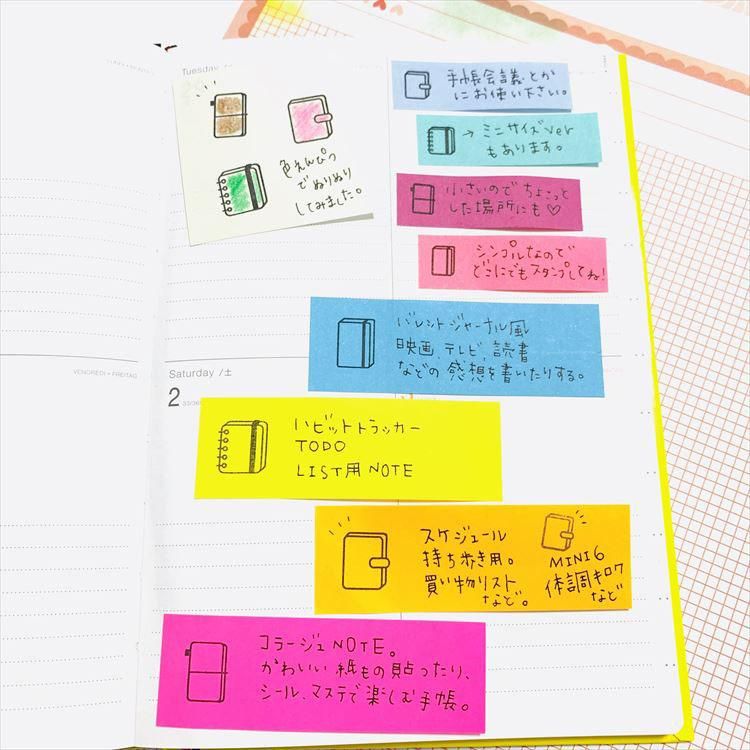 Tuesday /
色えんぴつ
でぬりぬり
してみました。
手帳会議とか
にお使い下さい。
→ ミニサイズver
もあります。
小さいのでちょこっと
した場所にも♡
シンプルなので
どこにでもスタンプしてね!
バレットジャーナル風
映画、テレビ、読書
などの感想を書いたりする。
VENDREDI • FREITAG
Saturday /土
2
ハビットトラッカー
TODO
LIST用NOTE
スケジュール
持ち歩き用。
買い物リスト
など。
MINI6
体調キロク
など
コラージュNOTE。
かわいい紙もの貼ったり、
シール、マステで楽しむ手帳。